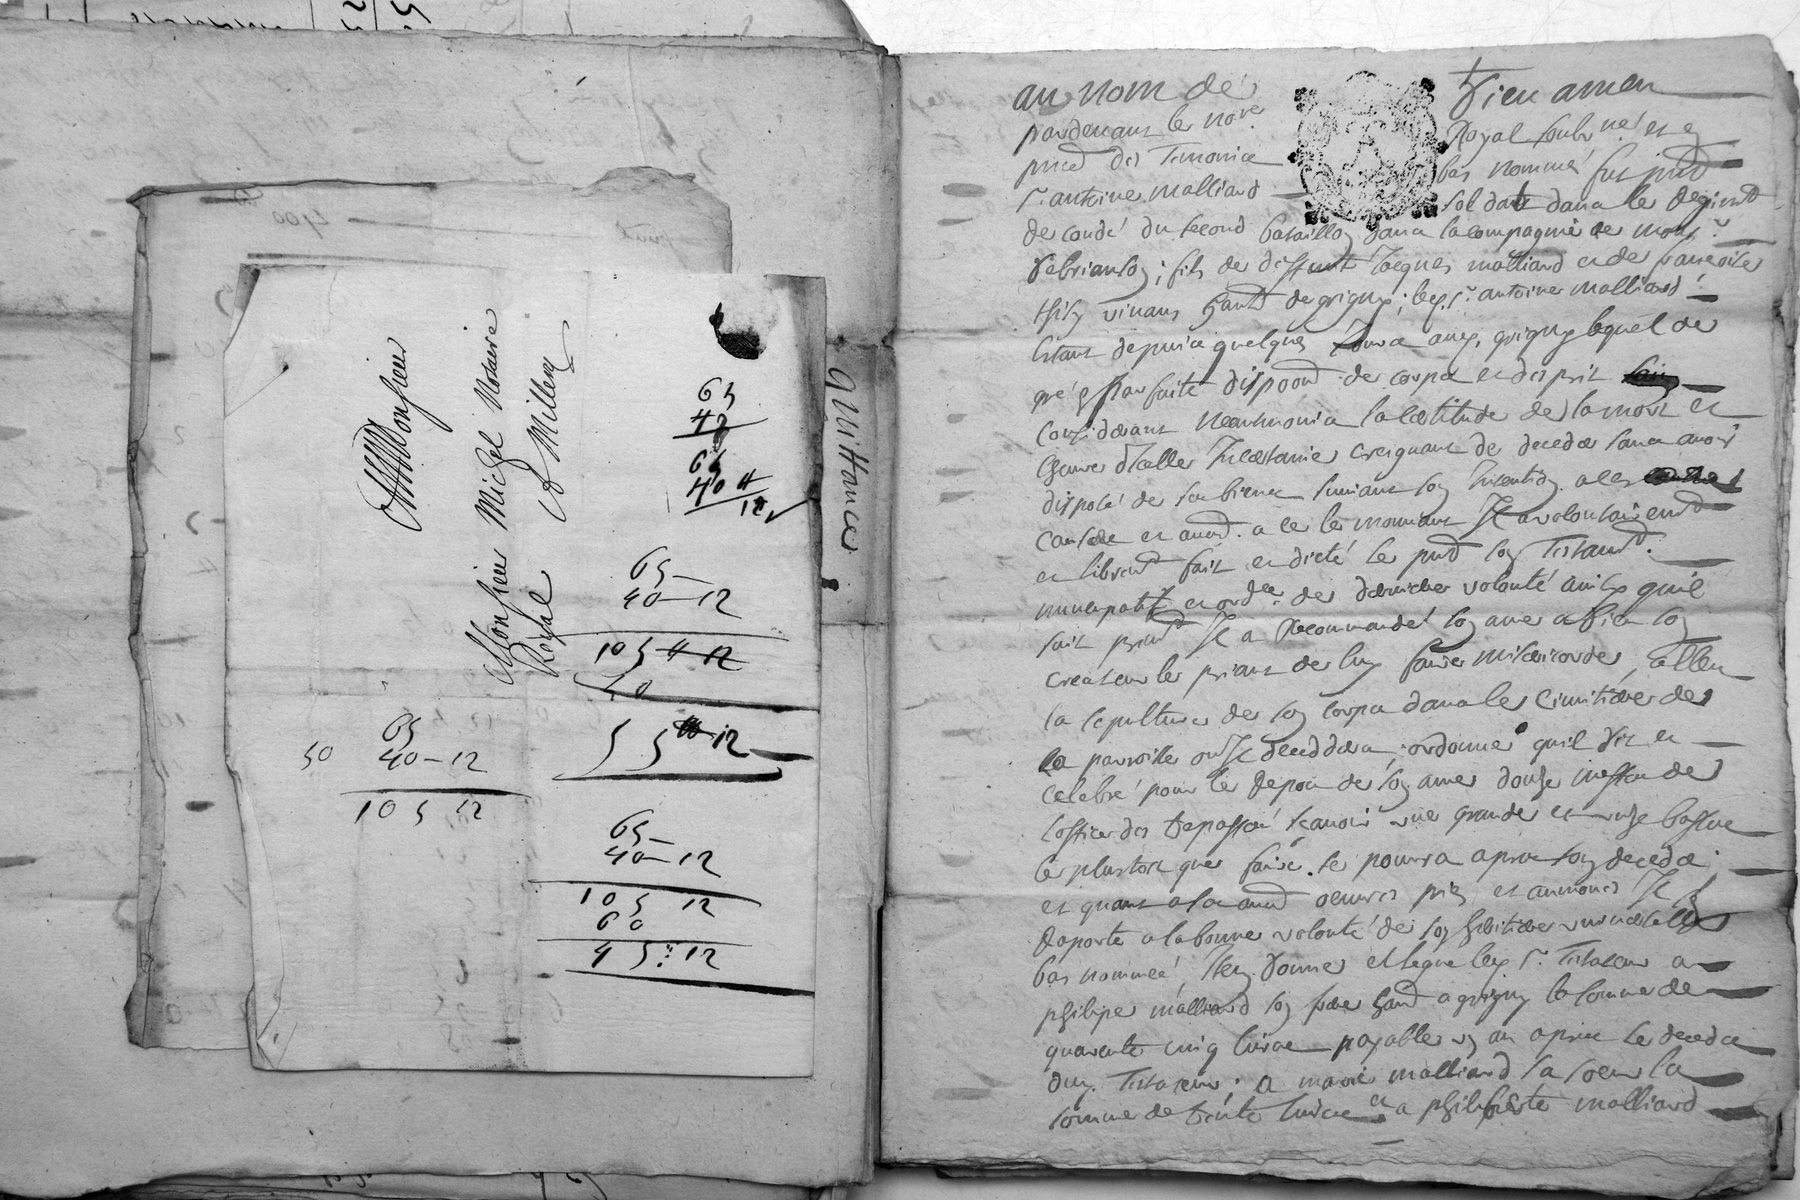 Monsieur
Monsieur Michel Notaire
Royal a Millery
65
40
65
40 12
65
40-12
105 12
40
55 12
50
65
40-12
105 12
65
40-12
105 12
60
45:12
quittances
400
au nom de Dieu amen
pardevant le no.re Royal soubz.né et e
presd des temoins bas nommé fut presd
s.r antoine malliard soldat dans le Regimd
de condé du second bataillon dans la compagnie de mons.r
Debrianson, fils de deffunt Jacques malliard et de francoise
vivans de grigny; ledy s.r antoine malliard
estant depuis quelques Jours audy. grigny lequel de
gré parfaite dispoon de corps et desprit
Considerant neantmoins la certitude de la mort et
lheure dicelle Incertaine creignant de deceder sans avoir
disposé de ses biens suivant son Intention a ces
causes et aud. a ce le mouvant Il a volontairemd
et librend fait et dicté le presd son Testamd.
nuncupatif et ord.ce de derniere volonté ainsy quil
suit premd Il a Recommandé son ame a Dieu son
createur le priant de luy faire misericorde, Esllu
la sepulture de son corps dans le cimitiere de
la parroisse ou Il deceddera, ordonne quil dit et
celebré pour le Repos de son ame douze messes de
loffice des trepassés scavoir une grande et unze basses
le plustost que faire se pourra apres son decedz
et quant a la aud oeuvres pies et aumones Il sen
Raporte a la bonne volonté de son heritiere universelle
bas nommeé, Item donne et legue ledy s.r Testateur a
philipe malliard son frere a grigny la somme de
quarente cinq livres payable un an apres le decedz
dudy. Testateur. a marie malliard sa soeur la
somme de trente livres et a philiberte malliard